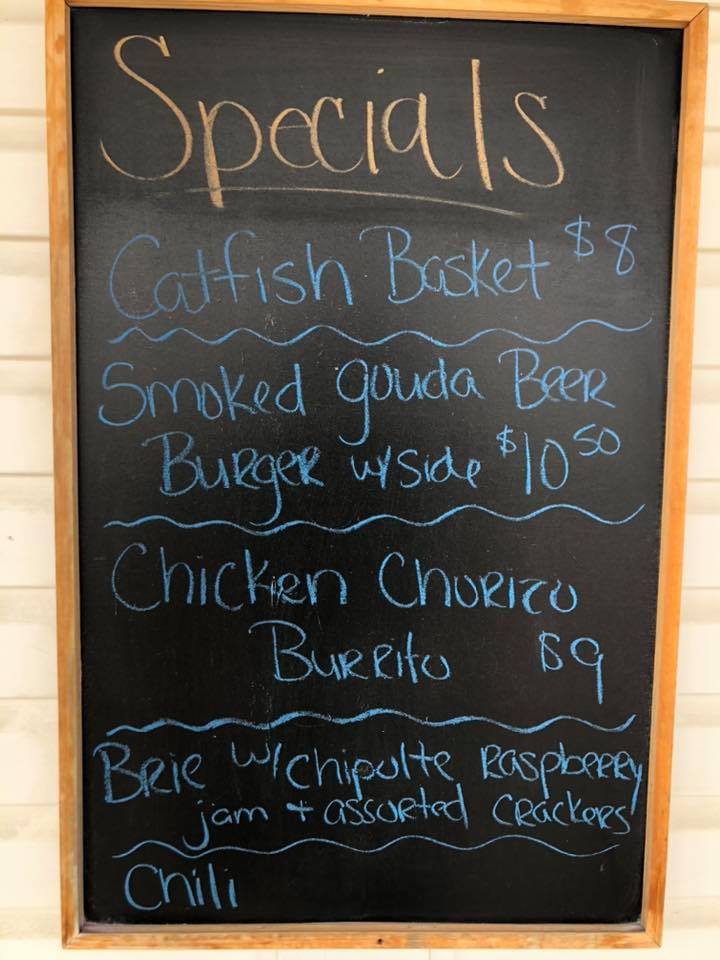 Specials
Catfish Basket $8
Smoked gouda Beer
Burger w/side $10.50
Chicken Chorizo
Burrito $9
Brie w/chipolte Raspberry
jam + assorted crackers
Chili